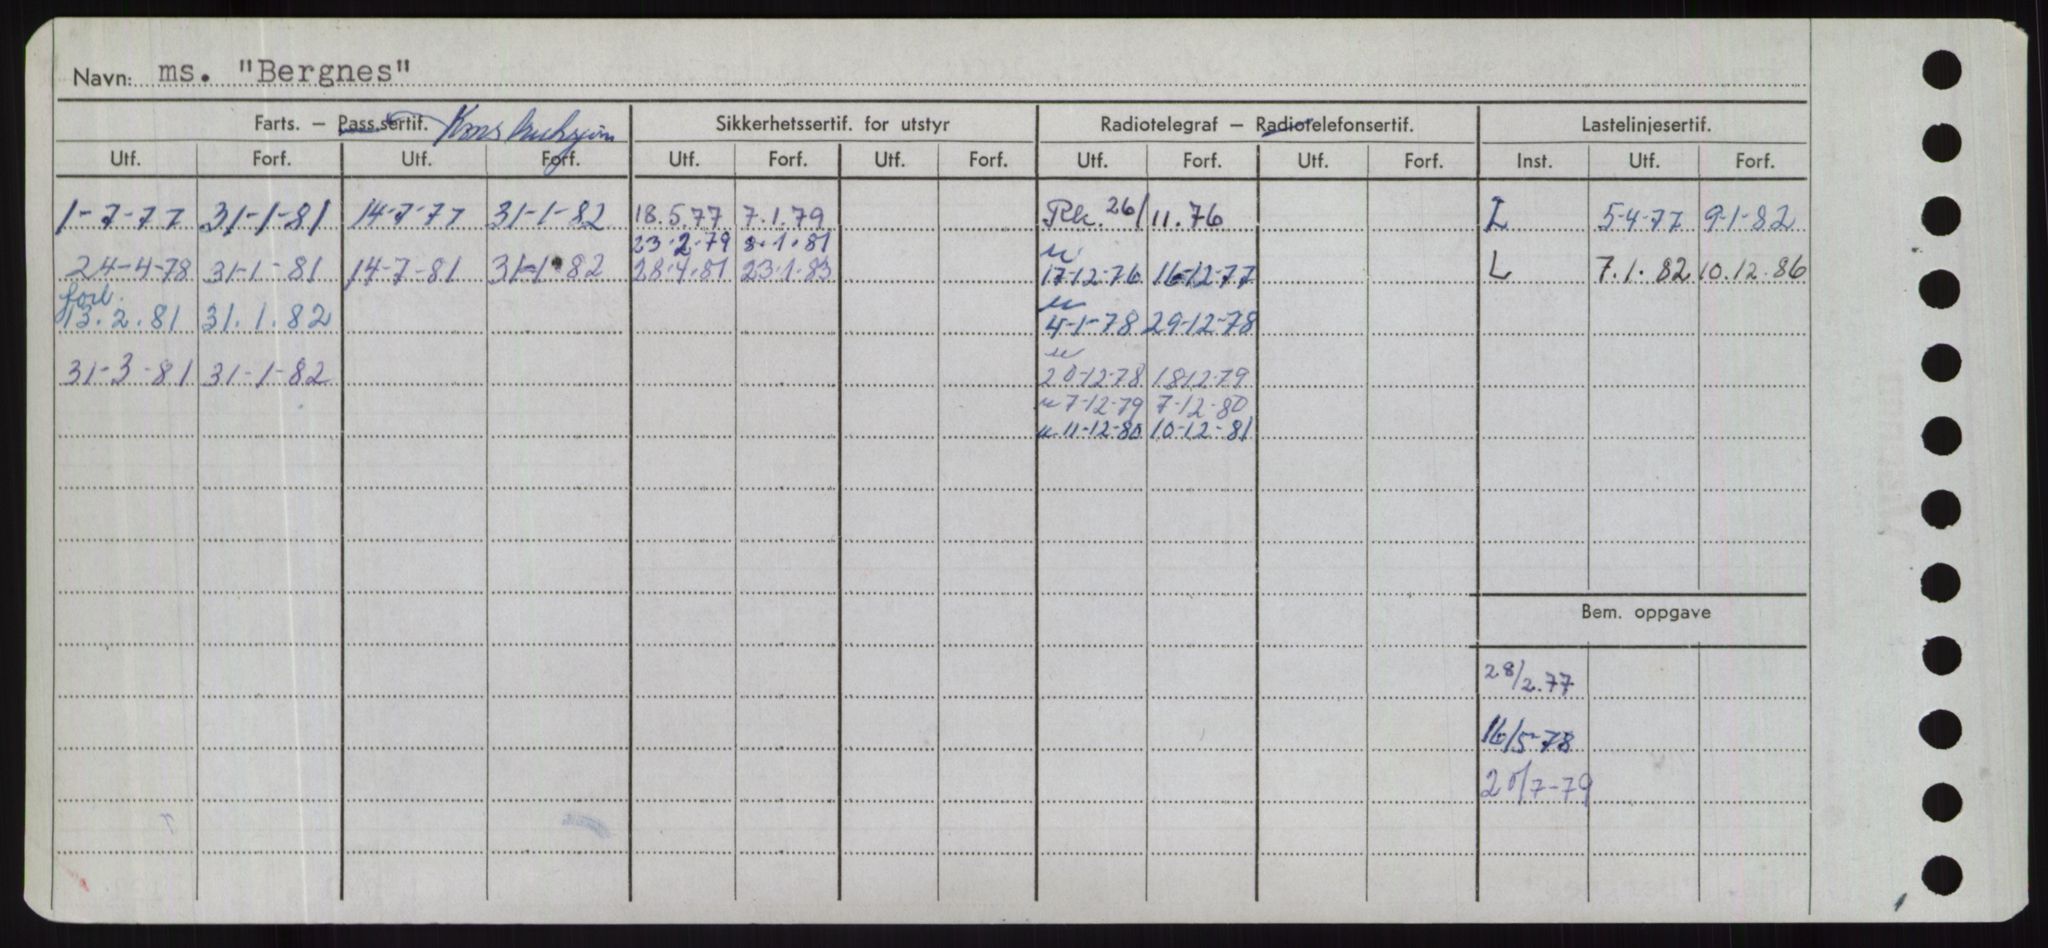 Navn: ms. "Bergnes"
Farts. – Pass.sertif. Sikkerhetssertif. for utstyr Radiotelegraf – Radiotelefonsertif. Lastelinjesertif.
Utf. Forf. Utf. Forf. Utf. Forf. Utf. Forf. Utf. Forf. Utf. Forf. Inst. Utf. Forf.
1-7-77 31-1-81 14-7-77 31-1-82 18.5.77 7.1.79 Rk. 26/11.76 L 5-4-77 9-1-82
23.2.79 8.1.81 u
24-4-78 31-1-81 14-7-81 31-1-82 28.4.81 23.1.83 17-12-76 16-12-77 L 7.1.82 10.12.86
forl. u
13.2.81 31.1.82 4-1-78 29-12-78
u
31-3-81 31-1-82 20-12-78 18-12-79
u 7-12-79 7-12-80
u. 11-12-80 10-12-81
Bem. oppgave
28/2.77
16/5-78
20/7-79